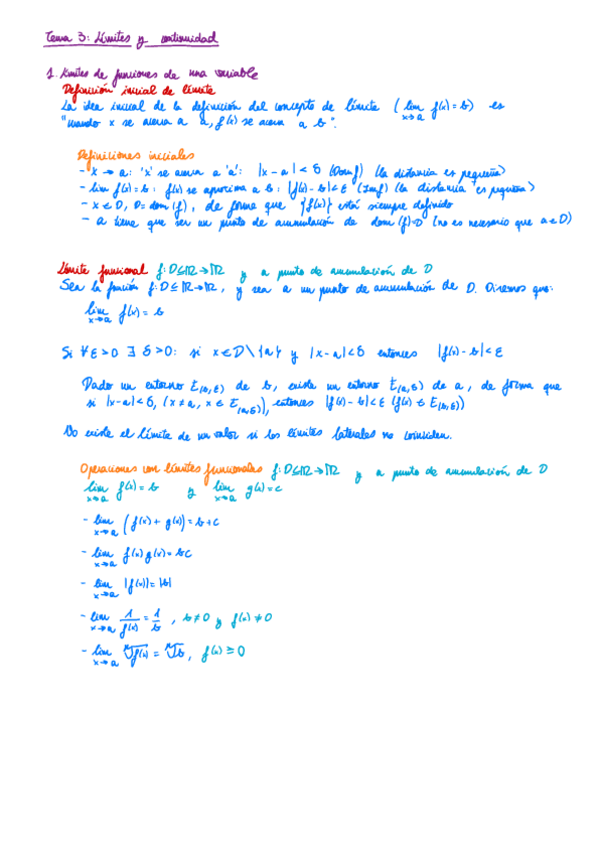 Tema 3: Límites y continuidad
1. Límites de funciones de una variable
Definición inicial de límite
La idea inicial de la definición del concepto de límite ( lim f(x) = b ) es
x→a
"cuando x se acerca a a, f(x) se acerca a b".
Definiciones iniciales
- x → a: 'x' se acerca a 'a': |x - a| < δ (Domf) (la distancia es pequeña)
- lim f(x) = b: f(x) se aproxima a b: |f(x) - b| < ε (Imf) (la distancia es pequeña)
- x ∈ D, D = dom (f), de forma que {f(x)} está siempre definido
- a tiene que ser un punto de acumulación de dom (f)=D (no es necesario que a ∈ D)
Límite funcional f: D ⊆ ℝ → ℝ y a punto de acumulación de D
Sea la función f: D ⊆ ℝ → ℝ, y sea a un punto de acumulación de D. Diremos que:
lim f(x) = b
x→a
Si ∀ ε > 0 ∃ δ > 0: si x ∈ D \ {a} y |x - a| < δ entonces |f(x) - b| < ε
Dado un entorno E(b, ε) de b, existe un entorno E(a, δ) de a, de forma que
si |x - a| < δ, (x ≠ a, x ∈ E(a, δ)), entonces |f(x) - b| < ε (f(x) ∈ E(b, ε))
No existe el límite de un valor si los límites laterales no coinciden.
Operaciones con límites funcionales f: D ⊆ ℝ → ℝ y a punto de acumulación de D
lim f(x) = b y lim g(x) = c
x→a x→a
- lim (f(x) + g(x)) = b + c
x→a
- lim f(x) g(x) = bc
x→a
- lim |f(x)| = |b|
x→a
- lim 1/f(x) = 1/b , b ≠ 0 y f(x) ≠ 0
x→a
- lim ⁿ√f(x) = ⁿ√b, f(x) ≥ 0
x→a